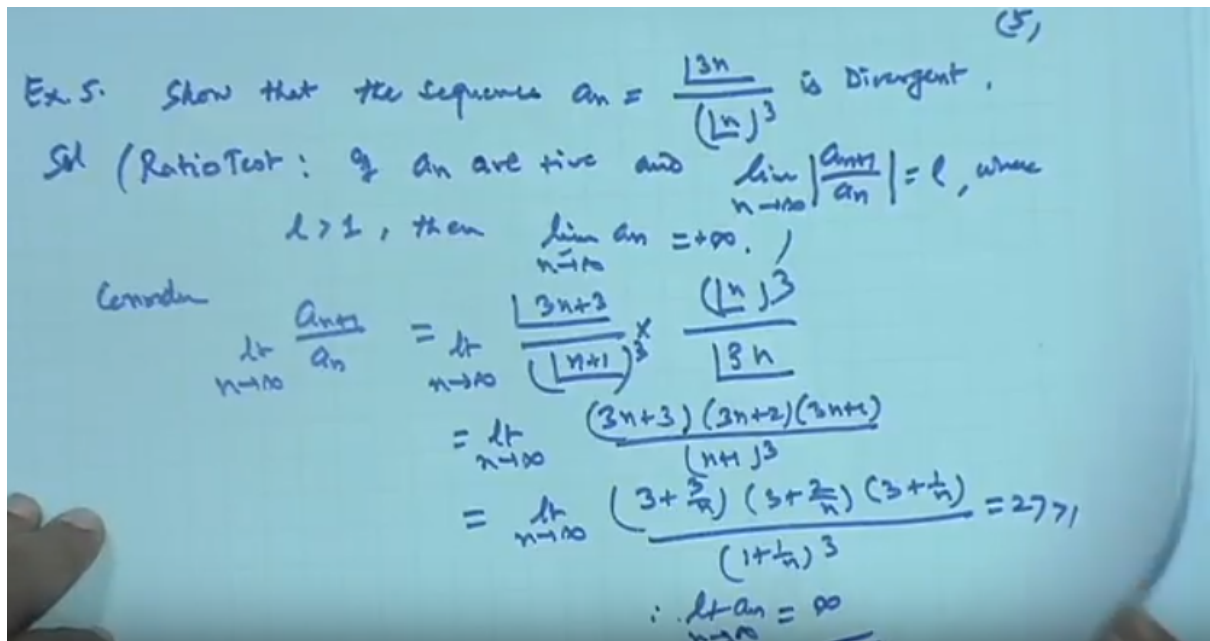 (5)
Ex. 5. Show that the sequence an = ⌊3n / (⌊n)^3 is Divergent.
Sol (Ratio Test: If an are +ive and lim n→∞ |an+1/an| = l, where
l > 1, then lim n→∞ an = +∞.)
Consider
lt n→∞ an+1/an = lt n→∞ ⌊3n+3 / (⌊n+1)^3 × (⌊n)^3 / ⌊3n
= lt n→∞ (3n+3)(3n+2)(3n+1) / (n+1)^3
= lt n→∞ (3+3/n)(3+2/n)(3+1/n) / (1+1/n)^3 = 27>1
∴ lt n→∞ an = ∞